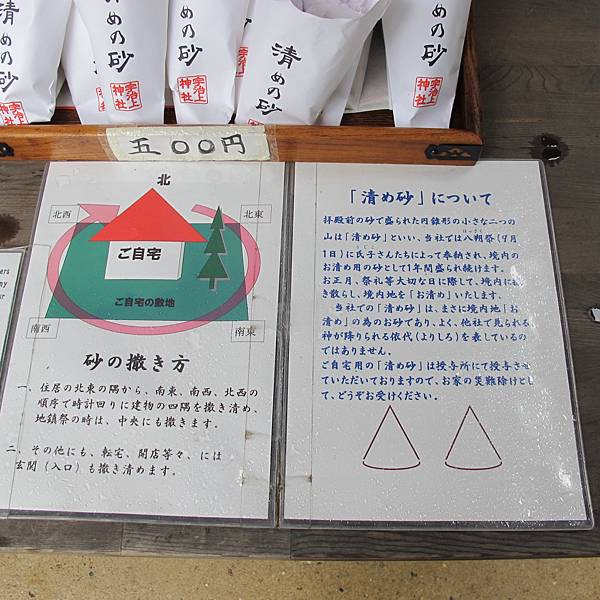 清めの砂
宇治上
神社
清めの砂
宇治上
神社
清めの砂
宇治上
神社
清めの砂
めの砂
宇治上
神社
五〇〇円
北
北西
北東
ご自宅
ご自宅の敷地
南西
南東
砂の撒き方
一、住居の北東の隅から、南東、南西、北西の
順序で時計回りに建物の四隅を撒き清め、
地鎮祭の時は、中央にも撒きます。
二、その他にも、転宅、開店等々、には
玄関（入口）も撒き清めます。
「清め砂」について
拝殿前の砂で盛られた円錐形の小さな二つの
山は「清め砂」といい、当社では八朔祭(9月
はっさく
1日)に氏子さんたちによって奉納され、境内の
うじこ
お清め用の砂として1年間盛られ続けます。
お正月、祭礼等大切な日に際して、境内に撒
き散らし、境内地を「お清め」いたします。
当社での「清め砂」は、まさに境内地「お
清め」の為のお砂であり、よく、他社で見られる
神が降りられる依代(よりしろ)を表しているの
ではありません。
ご自宅用の「清め砂」は授与所にて授与させ
ていただいておりますので、お家の災難除けとし
て、どうぞお受けください。